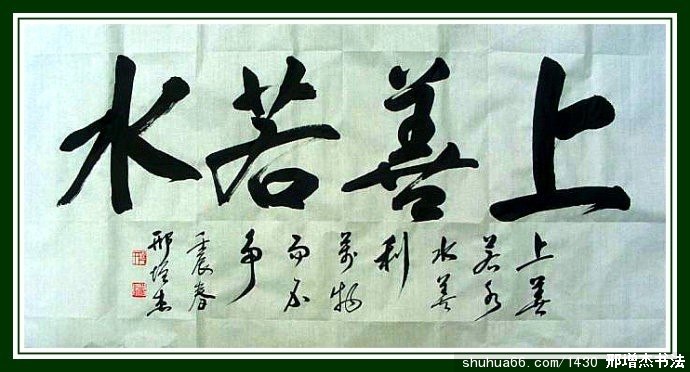 上善若水
上善
若水
水善
利
萬物
而不
争
壬辰春
邢增杰
shuhua66.com/1430 邢增杰书法